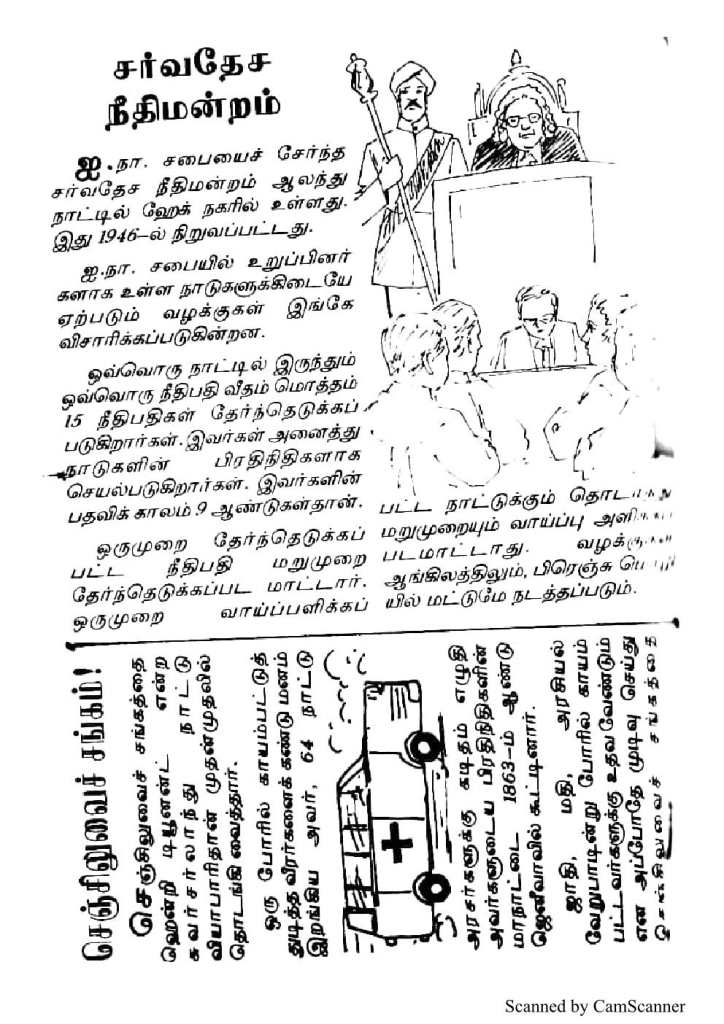 சர்வதேச
நீதிமன்றம்
ஐ.நா. சபையைச் சேர்ந்த
சர்வதேச நீதிமன்றம் ஆலந்து
நாட்டில் ஹேக் நகரில் உள்ளது.
இது 1946–ல் நிறுவப்பட்டது.
ஐ.நா. சபையில் உறுப்பினர்
களாக உள்ள நாடுகளுக்கிடையே
ஏற்படும் வழக்குகள் இங்கே
விசாரிக்கப்படுகின்றன.
ஒவ்வொரு நாட்டில் இருந்தும்
ஒவ்வொரு நீதிபதி வீதம் மொத்தம்
15 நீதிபதிகள் தேர்ந்தெடுக்கப்
படுகிறார்கள். இவர்கள் அனைத்து
நாடுகளின் பிரதிநிதிகளாக
செயல்படுகிறார்கள். இவர்களின்
பதவிக் காலம் 9 ஆண்டுகள்தான்.
ஒருமுறை தேர்ந்தெடுக்கப்
பட்ட நீதிபதி மறுமுறை
தேர்ந்தெடுக்கப்பட மாட்டார்.
ஒருமுறை வாய்ப்பளிக்கப்
பட்ட நாட்டுக்கும்
மறுமுறையும் வாய்ப்பு
படமாட்டாது.
ஆங்கிலத்திலும், பிரெஞ்சு
யில் மட்டுமே நடத்தப்படும்.
செஞ்சிலுவைச் சங்கம்!
செஞ்சிலுவைச் சங்கத்தை
ஹென்றி டியூனன்ட் என்ற
சுவிசர்லாந்து நாட்டு
வியாபாரிதான் முதன்முதலில்
தொடங்கி வைத்தார்.
ஒரு போரில் காயம்பட்டுத்
துடித்த வீரர்களைக் கண்டு மனம்
இறங்கிய அவர், 64 நாட்டு
அரசர்களுக்கு கடிதம் எழுதி
அவர்களுடைய பிரதிநிதிகளின்
மாநாட்டை 1863–ம் ஆண்டு
ஜெனீவாவில் கூட்டினார்.
ஜாதி, மதி, அரசியல்
வேறுபாடின்று போரில் காயம்
பட்டவர்களுக்கு உதவ வேண்டும்
என அப்போதே முடிவு செய்து
செஞ்சிலுவைச் சங்கத்தை
Scanned by CamScanner